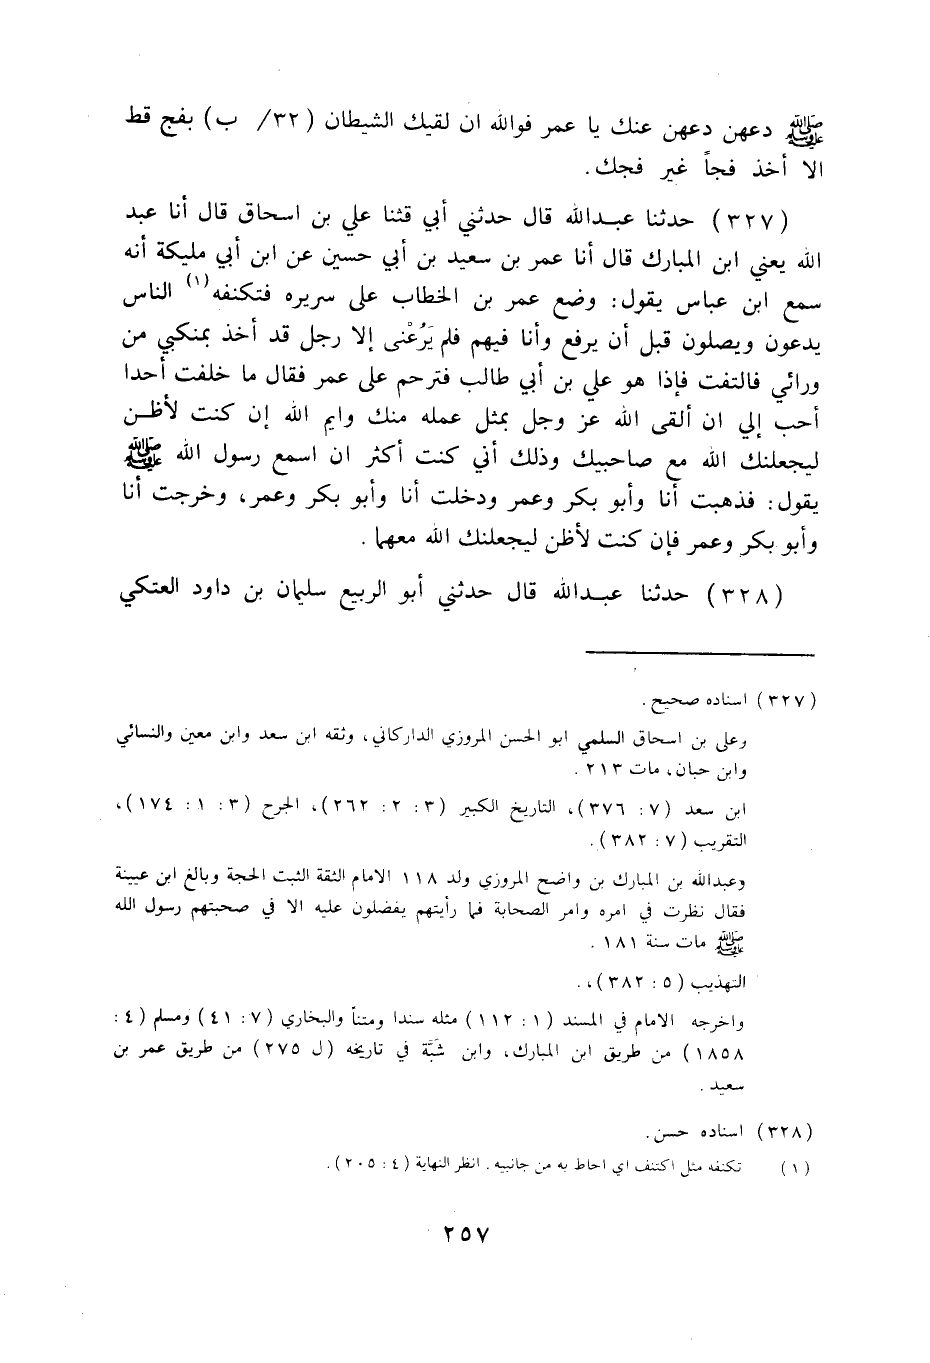 ﷺ دعهن دعهن عنك يا عمر فوالله ان لقيك الشيطان (٣٢/ ب) بفج قط
الا أخذ فجاً غير فجك .
(٣٢٧) حدثنا عبدالله قال حدثني أبي قثنا علي بن اسحاق قال أنا عبد
الله يعني ابن المبارك قال أنا عمر بن سعيد بن أبي حسين عن ابن أبي مليكة أنه
سمع ابن عباس يقول: وضع عمر بن الخطاب على سريره فتكنفه(١) الناس
يدعون ويصلون قبل أن يرفع وأنا فيهم فلم يَرُعْنى إلا رجل قد أخذ بمنكبي من
ورائي فالتفت فإذا هو علي بن أبي طالب فترحم على عمر فقال ما خلفت أحدا
أحب إلي ان ألقى الله عز وجل بمثل عمله منك وايم الله إن كنت لأظن
ليجعلنك الله مع صاحبيك وذلك أني كنت أكثر ان اسمع رسول الله ﷺ
يقول: فذهبت أنا وأبو بكر وعمر ودخلت أنا وأبو بكر وعمر، وخرجت أنا
وأبو بكر وعمر فإن كنت لأظن ليجعلنك الله معهما .
(٣٢٨) حدثنا عبدالله قال حدثني أبو الربيع سليمان بن داود العتكي
(٣٢٧) اسناده صحيح .
وعلى بن اسحاق السلمي ابو الحسن المروزي الداركاني، وثقه ابن سعد وابن معين والنسائي
وابن حبان، مات ٢١٣ .
ابن سعد (٧: ٣٧٦)، التاريخ الكبير (٣: ٢: ٢٦٢)، الجرح (٣: ١: ١٧٤)،
التقريب (٧: ٣٨٢) .
وعبدالله بن المبارك بن واضح المروزي ولد ١١٨ الامام الثقة الثبت الحجة وبالغ ابن عيينة
فقال نظرت في امره وامر الصحابة فما رأيتهم يفضلون عليه الا في صحبتهم رسول الله
ﷺ مات سنة ١٨١ .
التهذيب (٥: ٣٨٢)، .
واخرجه الامام في المسند (١: ١١٢) مثله سندا ومتناً والبخاري (٧: ٤١) ومسلم (٤:
١٨٥٨) من طريق ابن المبارك، وابن شَبَّة في تاريخه (ل ٢٧٥) من طريق عمر بن
سعيد .
(٣٢٨) اسناده حسن .
(١) تكنفه مثل اكتنف اي احاط به من جانبيه . انظر النهاية (٤: ٢٠٥) .
٢٥٧